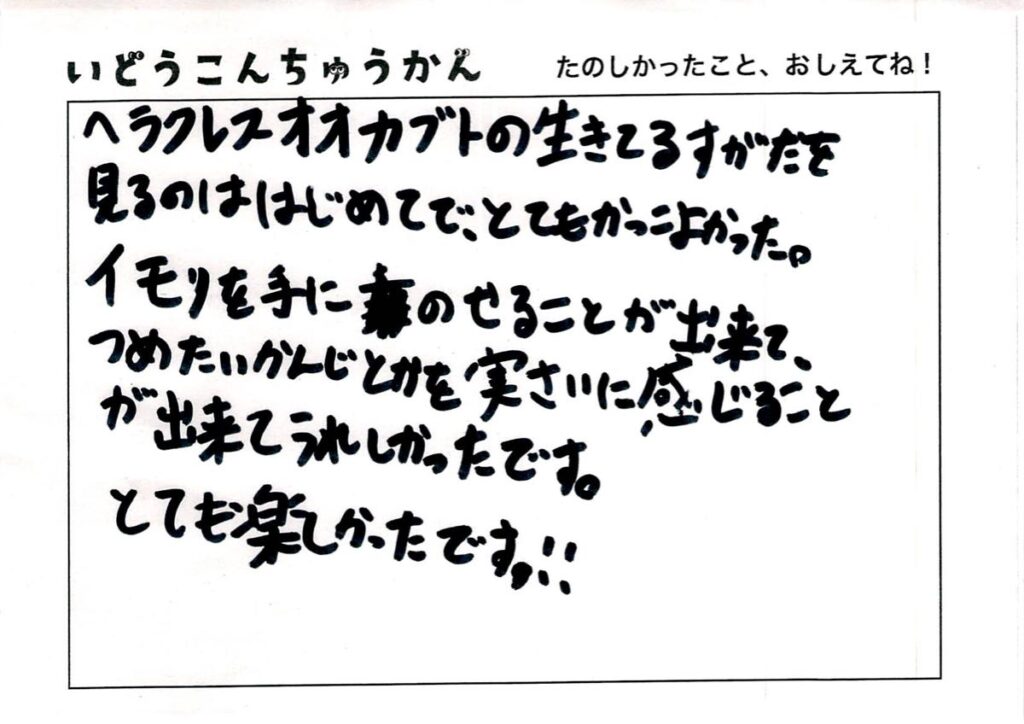 いどうこんちゅうかん
たのしかったこと、おしえてね！
ヘラクレスオオカブトの生きてるすがたを
見るのははじめてで、とてもかっこよかった。
イモリを手にのせることが出来て、
つめたいかんじとかを実さいに感じること
が出来てうれしかったです。
とても楽しかったです。!!